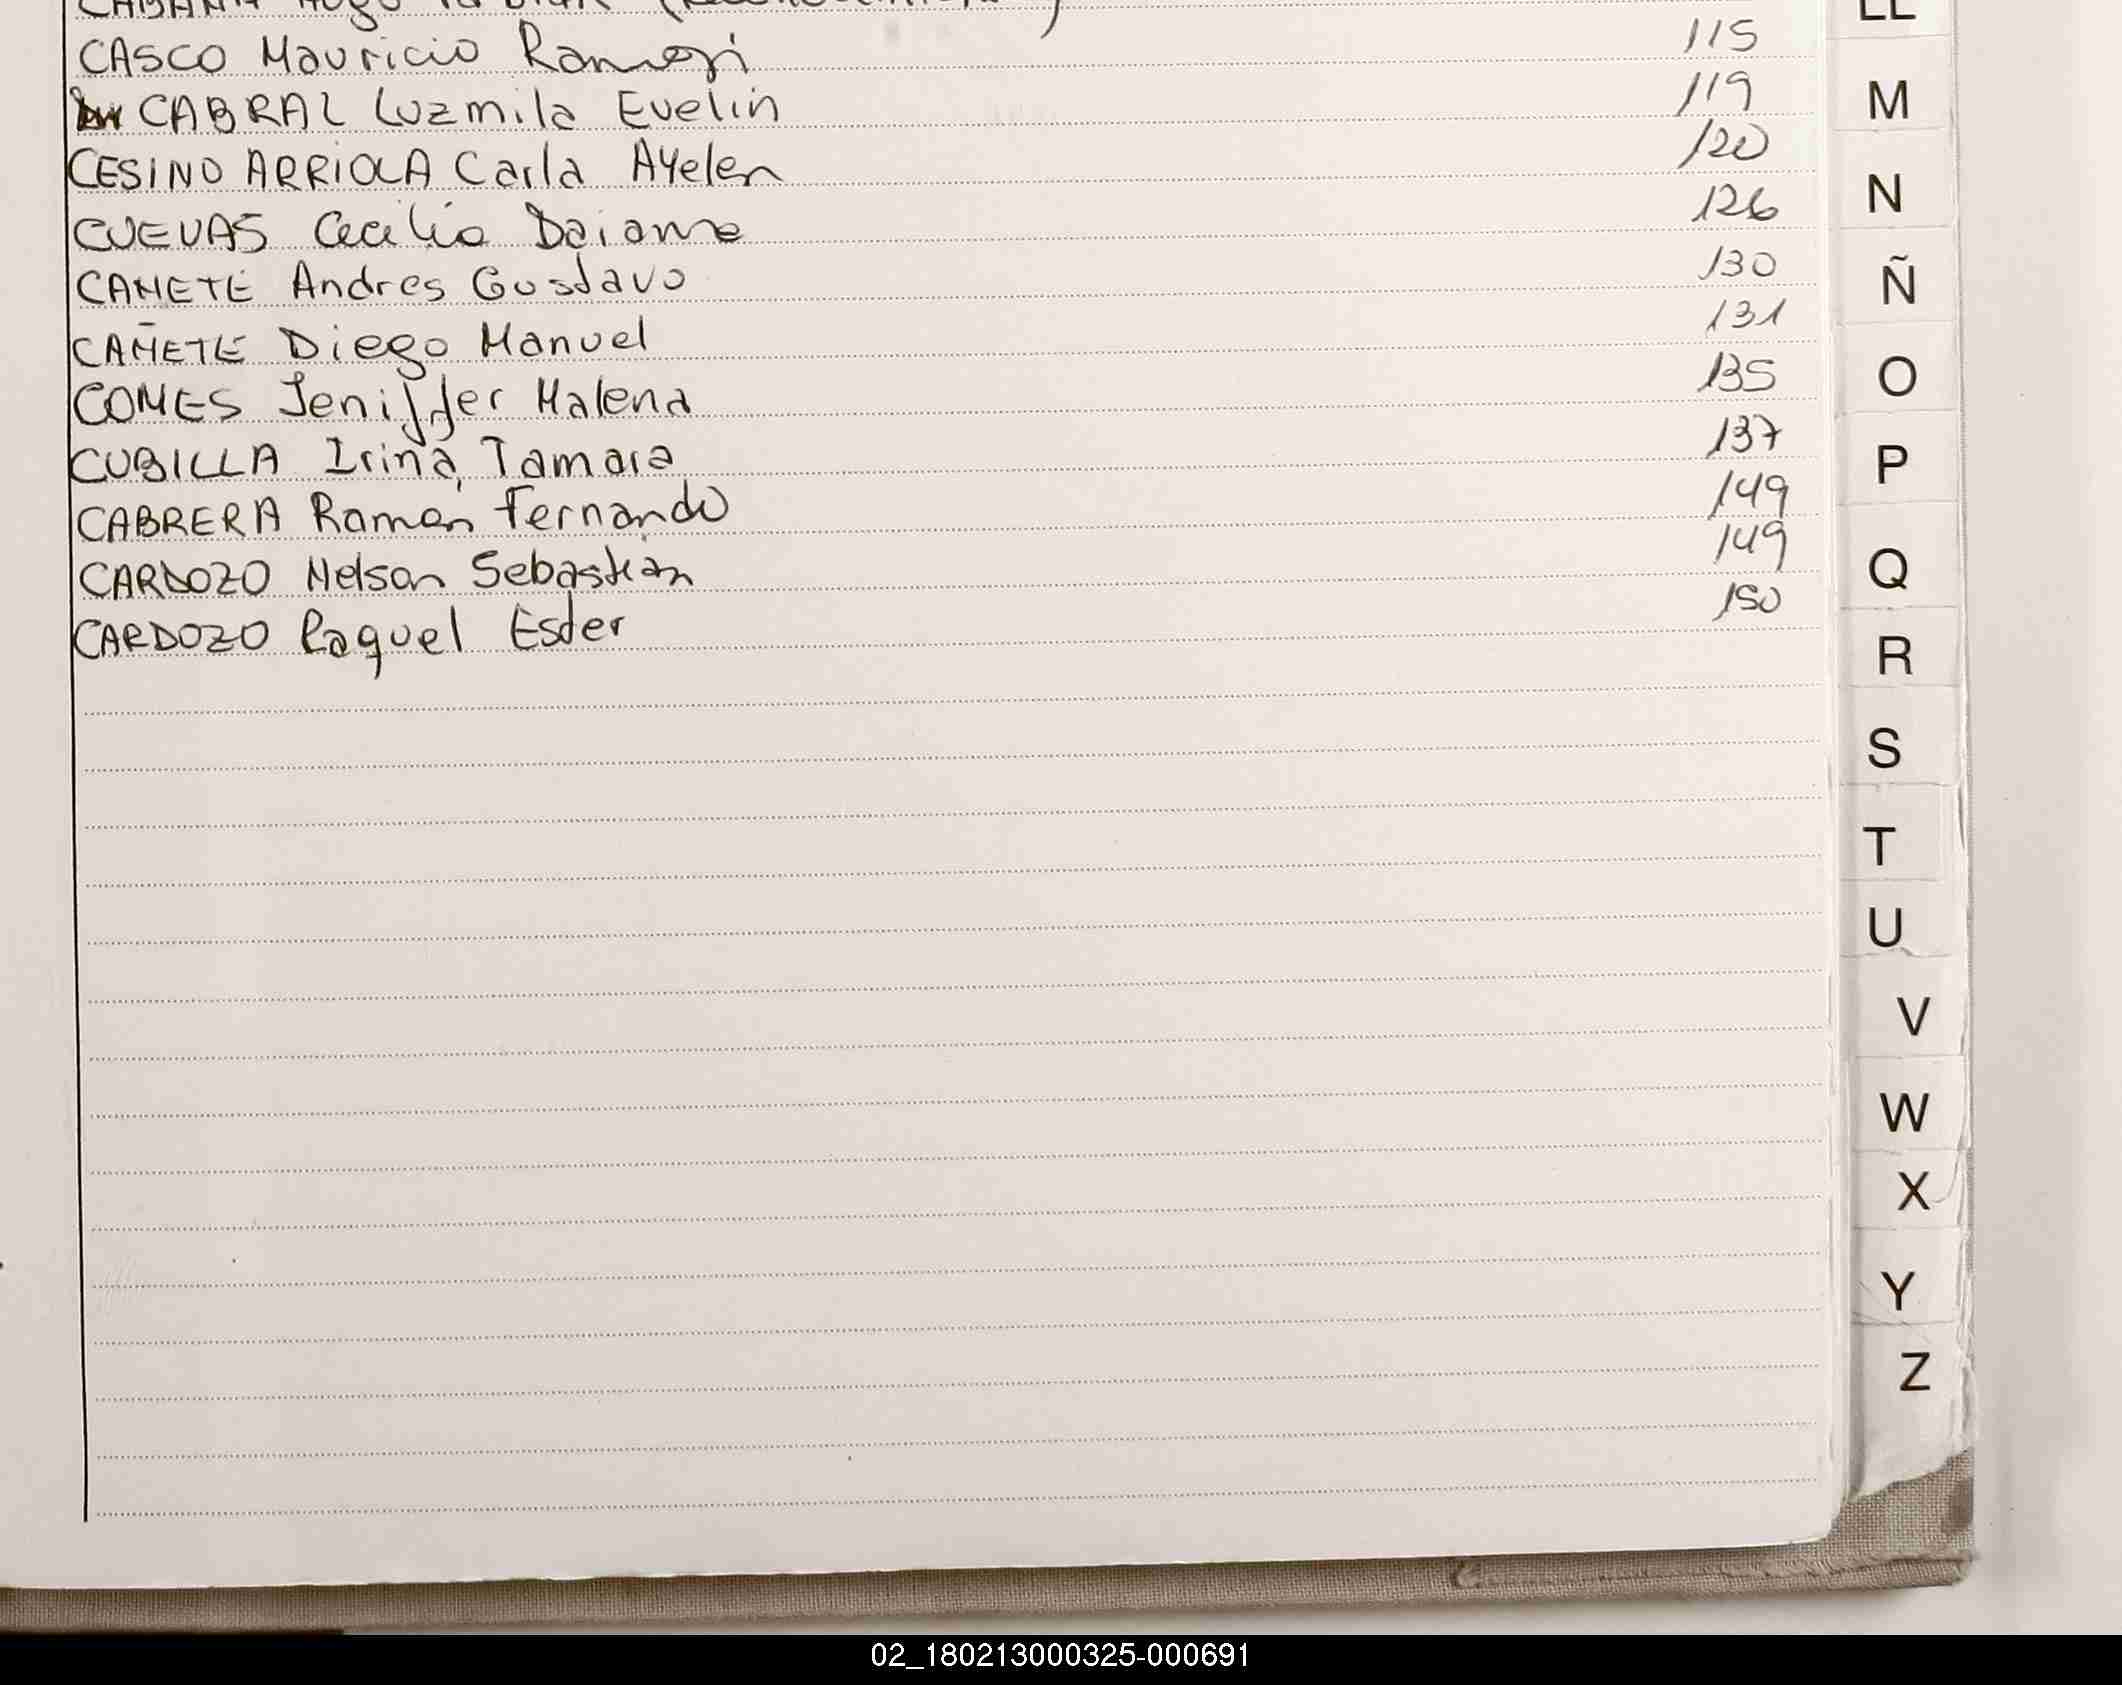 CABAÑA Hugo Fabian (Reconocimiento)
CASCO Mauricio Ramon 115
CABRAL Luzmila Evelin 119
CESINO ARRIOLA Carla Ayelen 120
CUEVAS Cecilia Daiana 126
CAÑETE Andres Gustavo 130
CAÑETE Diego Manuel 131
COMES Jeniffer Malena 135
CUBILLA Irina Tamara 137
CABRERA Ramón Fernando 149
CARDOZO Nelson Sebastián 149
CARDOZO Raquel Ester 150
LL
M
N
Ñ
O
P
Q
R
S
T
U
V
W
X
Y
Z
02_180213000325-000691